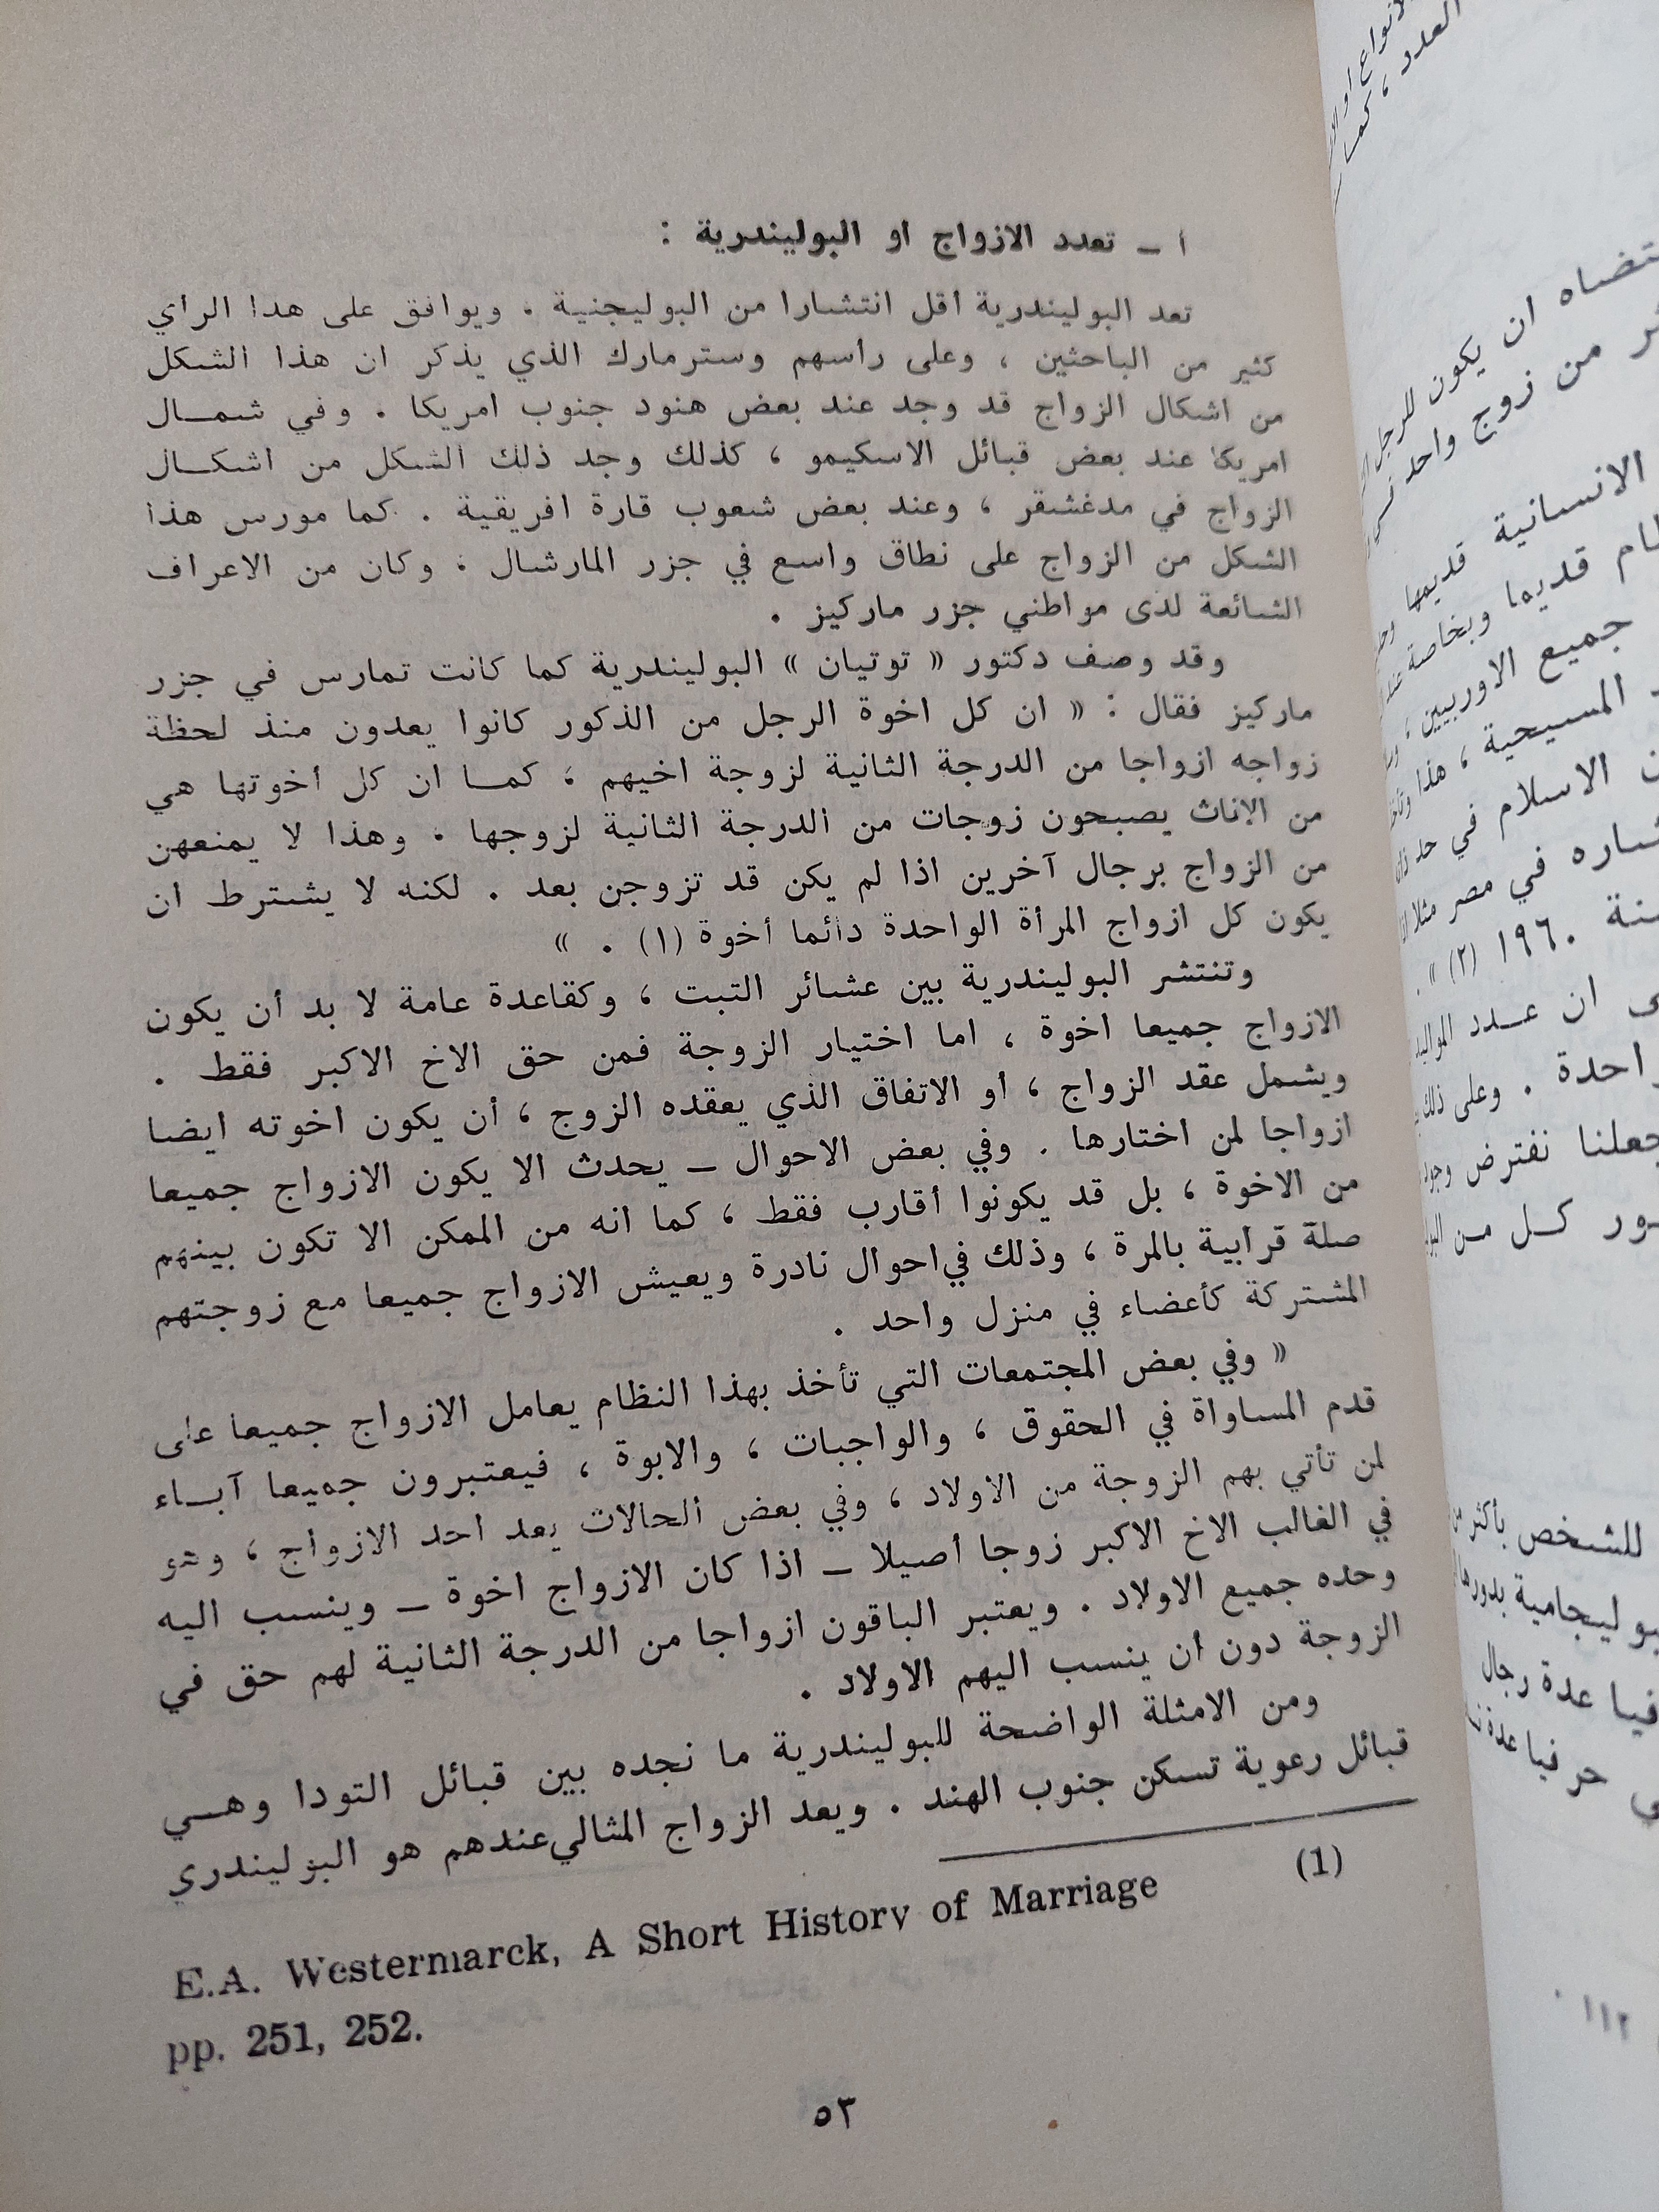 أ ــ تعدد الازواج او البوليندرية :
تعد البوليندرية اقل انتشارا من البوليجنية . ويوافق على هذا الراي
كثير من الباحثين ، وعلى رأسهم وسترمارك الذي يذكر ان هذا الشكل
من اشكال الزواج قد وجد عند بعض هنود جنوب امريكا . وفي شمــال
امريكا عند بعض قبائل الاسكيمو ، كذلك وجد ذلك الشكل من اشكــال
الزواج في مدغشقر ، وعند بعض شعوب قارة افريقية . كما مورس هذا
الشكل من الزواج على نطاق واسع في جزر المارشال ، وكان من الاعراف
الشائعة لدى مواطني جزر ماركيز .
وقد وصف دكتور « توتيان » البوليندرية كما كانت تمارس في جزر
ماركيز فقال : « ان كل اخوة الرجل من الذكور كانوا يعدون منذ لحظة
زواجه ازواجا من الدرجة الثانية لزوجة اخيهم ، كمــا ان كل أخوتها هي
من الاناث يصبحون زوجات من الدرجة الثانية لزوجها . وهذا لا يمنعهن
من الزواج برجال آخرين اذا لم يكن قد تزوجن بعد . لكنه لا يشترط ان
يكون كل ازواج المرأة الواحدة دائما أخوة (١) . »
وتنتشر البوليندرية بين عشائر التبت ، وكقاعدة عامة لا بد أن يكون
الازواج جميعا اخوة ، اما اختيار الزوجة فمن حق الاخ الاكبر فقط .
ويشمل عقد الزواج ، أو الاتفاق الذي يعقده الزوج ، أن يكون اخوته ايضا
ازواجا لمن اختارها . وفي بعض الاحوال ــ يحدث الا يكون الازواج جميعا
من الاخوة ، بل قد يكونوا أقارب فقط ، كما انه من الممكن الا تكون بينهم
صلة قرابية بالمرة ، وذلك في احوال نادرة ويعيش الازواج جميعا مع زوجتهم
المشتركة كأعضاء في منزل واحد .
« وفي بعض المجتمعات التي تأخذ بهذا النظام يعامل الازواج جميعا على
قدم المساواة في الحقوق ، والواجبات ، والابوة ، فيعتبرون جميعا آبــاء
لمن تأتي بهم الزوجة من الاولاد ، وفي بعض الحالات يعد احد الازواج ، وهو
في الغالب الاخ الاكبر زوجا أصيلا ــ اذا كان الازواج اخوة ــ وينسب اليه
وحده جميع الاولاد . ويعتبر الباقون ازواجا من الدرجة الثانية لهم حق في
الزوجة دون أن ينسب اليهم الاولاد .
ومن الامثلة الواضحة للبوليندرية ما نجده بين قبائل التودا وهــي
قبائل رعوية تسكن جنوب الهند . ويعد الزواج المثالي عندهم هو البوليندري
(1)
E.A. Westermarck, A Short History of Marriage
pp. 251, 252.
٥٣
العدد ، كما
ان يكون للرجل
من زوج واحد
الانسانية قديما
قديما وبخاصة عند
جميع الاوربيين ،
المسيحية ، هذا
الاسلام في حد
في مصر مثلا
١٩٦٠ (٢) » .
ان عــدد المواليد
. وعلى ذلك
نفترض
كــل من
للشخص بأكثر من
بدورها
عدة رجال
حرفيا عدة
١١٢ .